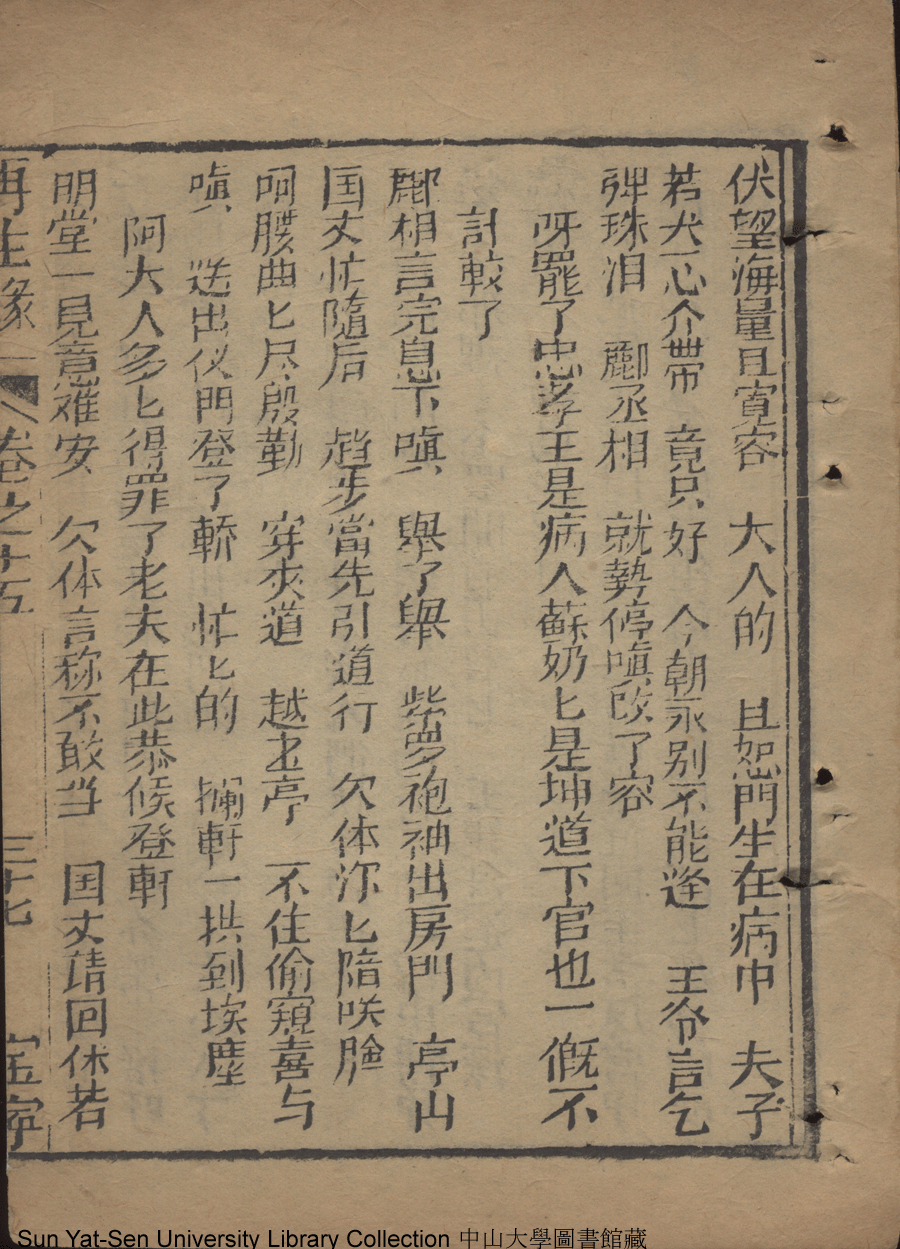 伏望海量且寬容　大人的　且恕門生在病中　夫子
若犬心介帶　竟只好　今朝永别不能逢　王爷言乞
弹珠泪　酈丞相　就勢停嗔改了容
呀罷了忠孝王是病人蘇奶匕是坤道下官也一概不
計較了
酈相言完息下嗔　舉了舉　紫罗袍袖出房門　亭山
国丈忙隨后　趋步當先引道行　欠体沵匕陪咲臉
呵腰曲匕尽殷勤　穿夾道　越圭亭　不住偷窺喜与
嗔　送出仪門登了轎　忙匕的　搁軒一拱到埃塵
阿大人多匕得罪了老夫在此恭候登軒
明堂一見意难安　欠体言称不敢当　国丈靖回休若
再生緣　卷之十五　三十七　宝宁
Sun Yat-Sen University Library Collection 中山大學圖書館藏